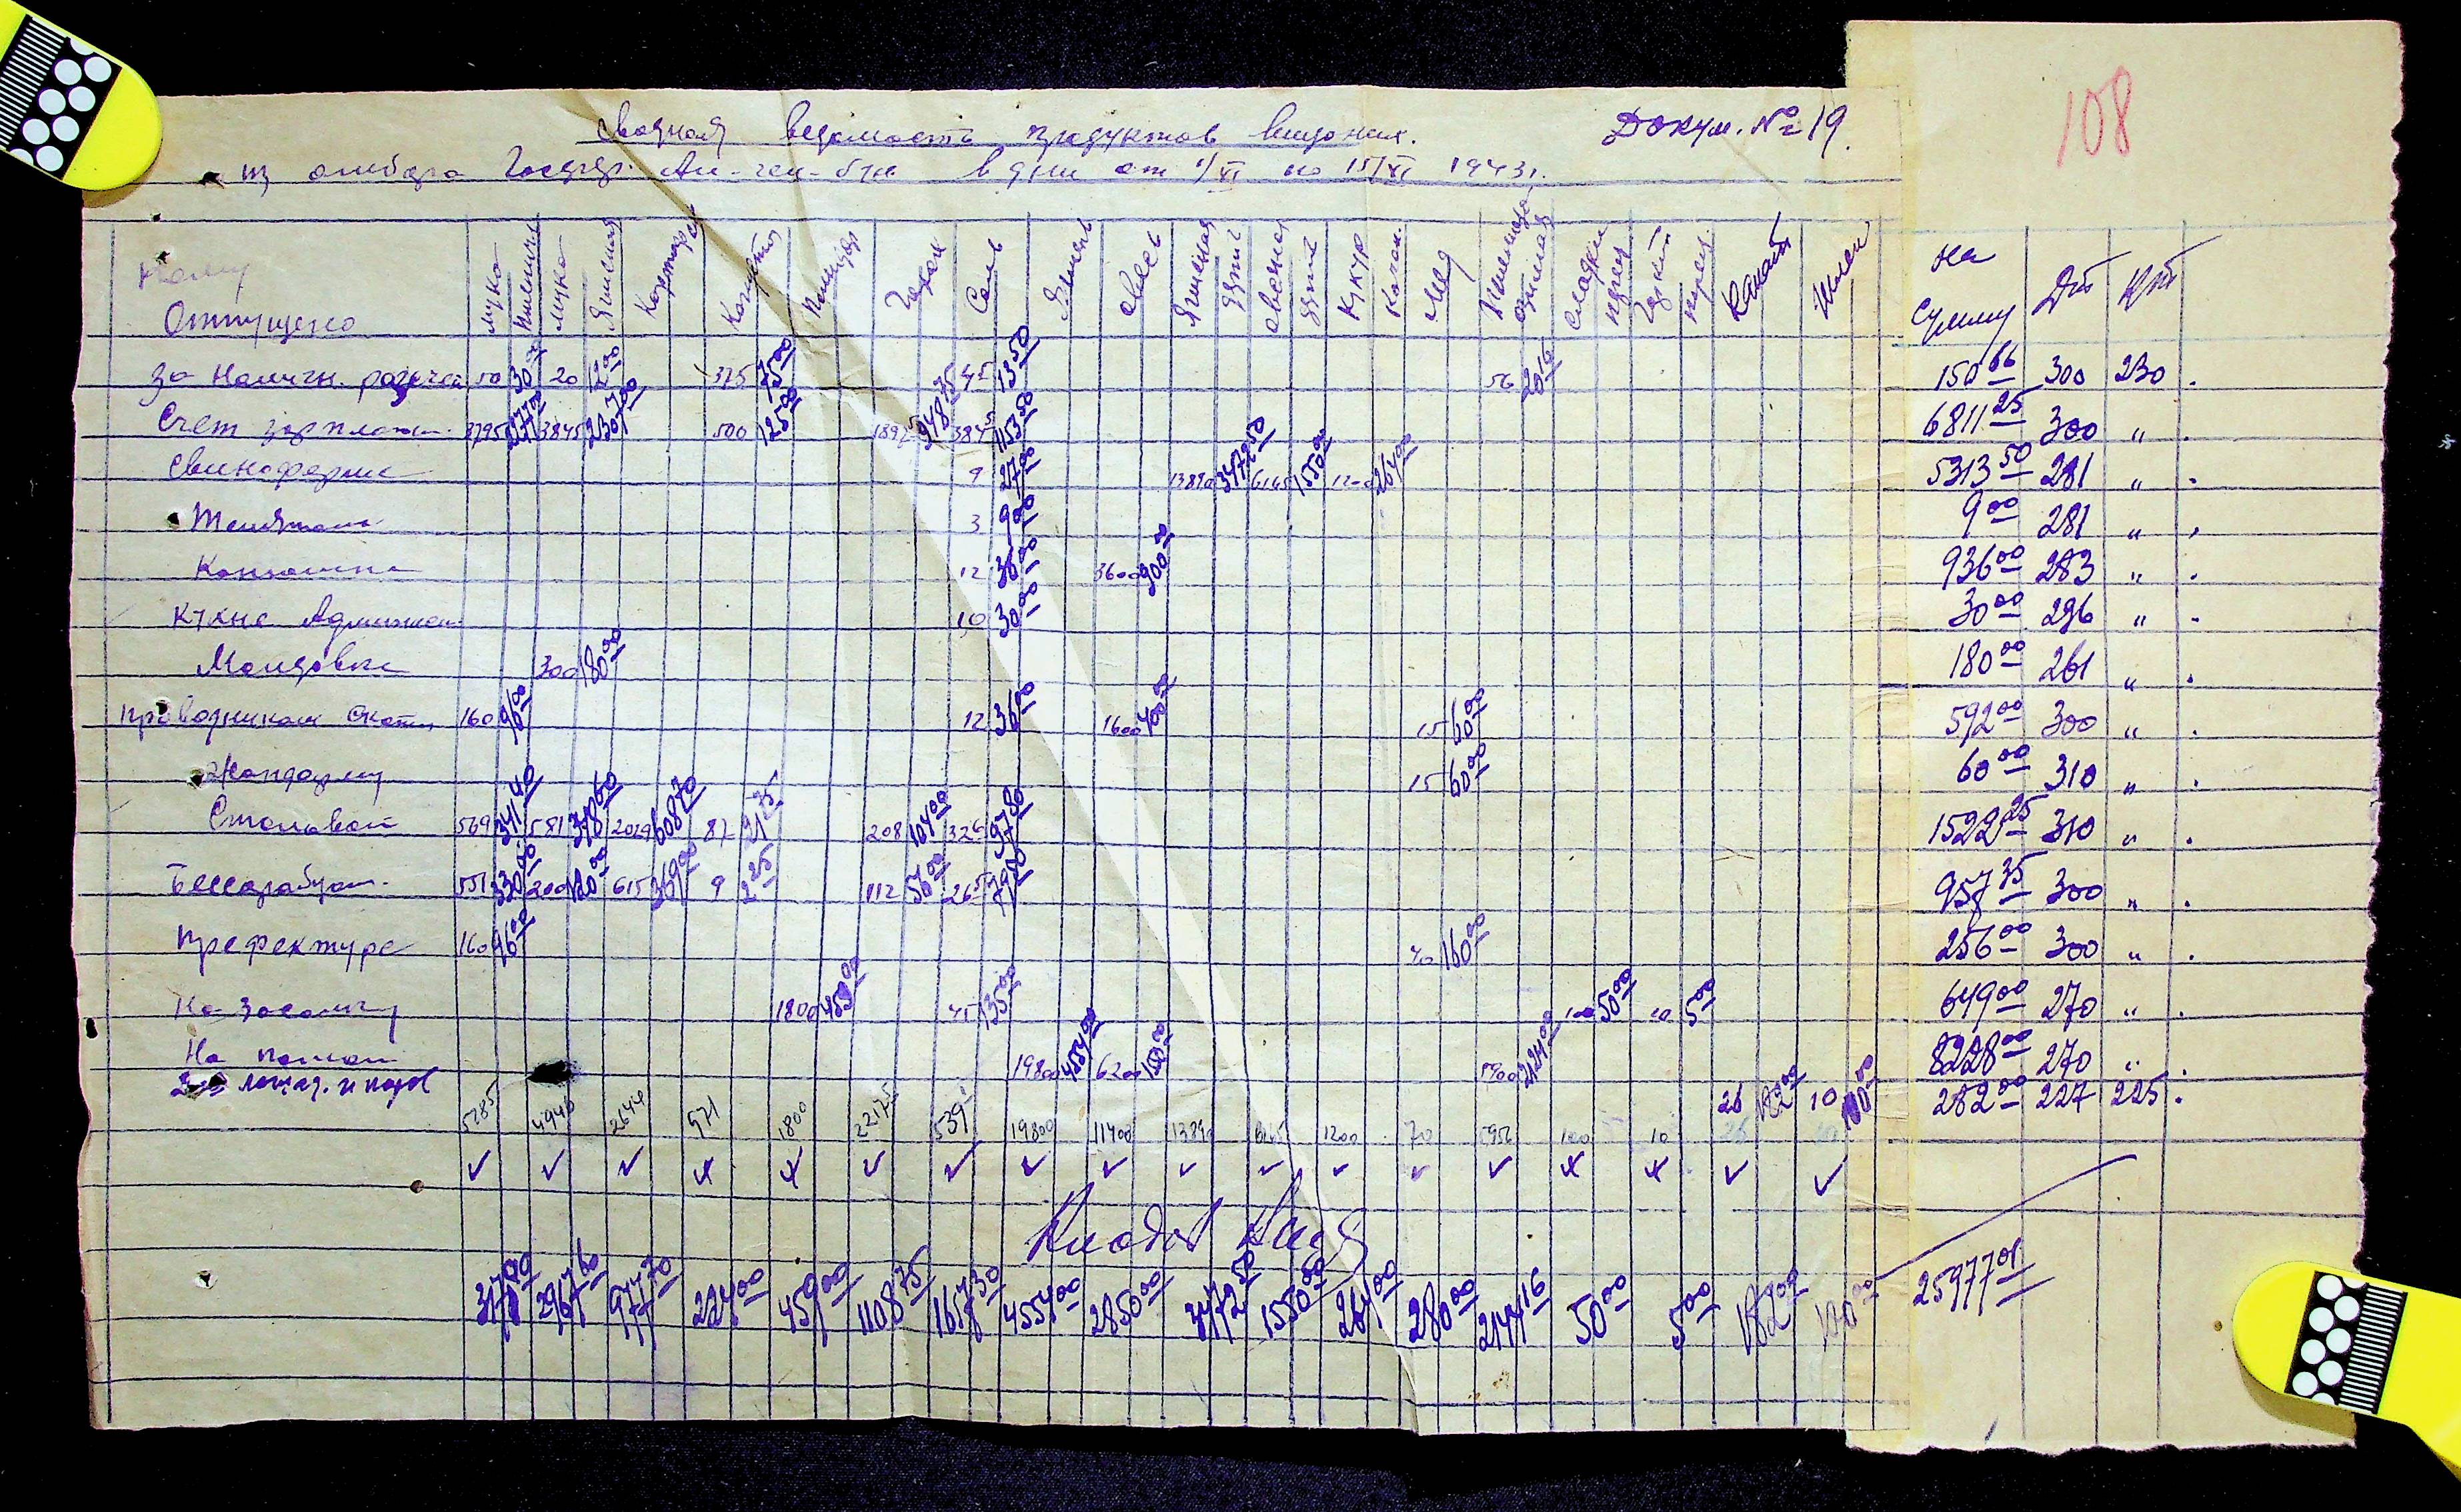 108
Докум. № 19.
Сводная ведомость продуктов выданых.
из амбара в дни от 1/XI по 15/XI 1943 г.
Кому Отпущено мука пшеничн мука ячменная Картофеля Капуста Помидор Горох Соль Ячмень Овесь Ячменная дерть Овсяная дерть Кукур Мед Пшеница озимая сладкий перец Горький перец Канат На Сумму Дт Кт
За наличн. расчет 50 30 00 20 12 00 375 75 00 45 13 50 56 20 16 150 66 300 230
Счет зарплаты 3795 2277 00 3845 2307 00 500 125 00 1897 5 948 75 384 5 1153 50 6811 25 300 "
Свиноферме 9 27 00 13890 3472 50 1550 00 1200 264 00 5313 50 281 "
Телятам 3 9 00 9 00 281 "
Конюшня 12 36 00 3600 900 00 936 00 283 "
Кухне Админист 10 30 00 30 00 296 "
300 180 00 180 00 261 "
Проводникам скота 160 96 00 12 36 00 1600 400 00 15 60 00 592 00 300 "
Жандарму 15 60 00 60 00 310 "
Столовой 569 341 40 581 348 60 2029 608 70 87 21 75 208 104 00 326 97 80 1522 25 310 "
551 330 00 200 120 00 615 369 00 9 2 25 112 56 00 265 79 50 957 35 300 "
Префектуре 160 96 00 40 160 00 256 00 300 "
На засолку 1800 459 00 45 135 00 100 50 00 10 5 00 649 00 270 "
На 19800 4554 00 6200 1550 00 5900 2124 00 8228 00 270 "
26 182 00 10 100 00 282 00 227 225
5285 4946 2644 971 1800 2217 5 539 19800 11400 13890 1200 70 5956 100 10
3170 2967 60 977 70 224 00 459 00 1108 75 1617 30 4554 00 2850 00 3472 50 1550 00 264 00 280 00 2144 16 50 00 5 00 182 00 100 00 25977 01